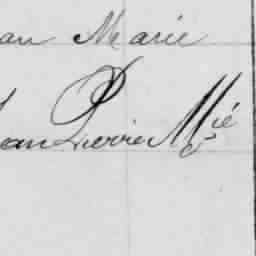 an Marie
Jean Pierre M.ié